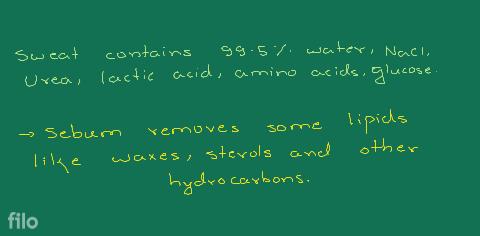 Sweat contains 99.5% water, NaCl,
Urea, lactic acid, amino acids, glucose.
→ Sebum removes some lipids
like waxes, sterols and other
hydrocarbons.
filo